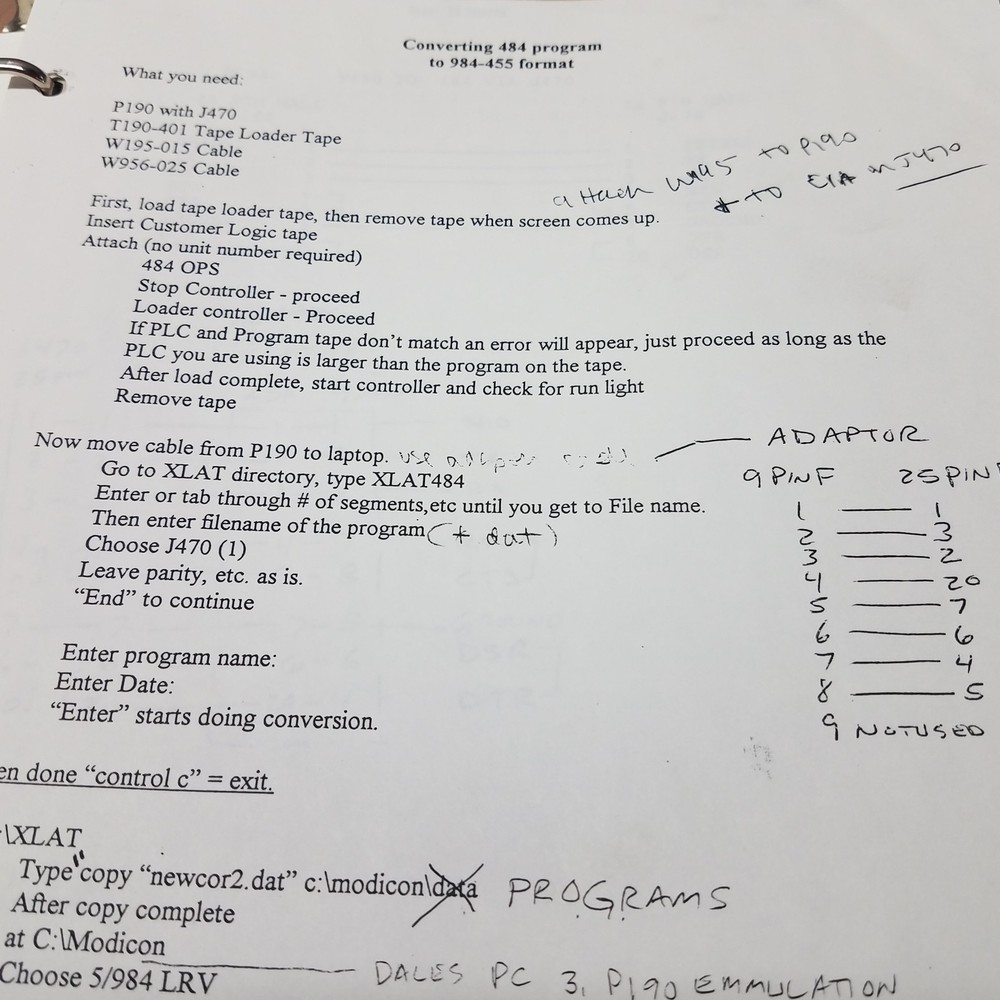 Converting 484 program
to 984-455 format
What you need:
P190 with J470
T190-401 Tape Loader Tape
W195-015 Cable
W956-025 Cable
attach W195 to P190
+ to EIA on J470
First, load tape loader tape, then remove tape when screen comes up.
Insert Customer Logic tape
Attach (no unit number required)
484 OPS
Stop Controller - proceed
Loader controller - Proceed
If PLC and Program tape don't match an error will appear, just proceed as long as the
PLC you are using is larger than the program on the tape.
After load complete, start controller and check for run light
Remove tape
Now move cable from P190 to laptop. use
Go to XLAT directory, type XLAT484
Enter or tab through # of segments,etc until you get to File name.
Then enter filename of the program (*.dat)
Choose J470 (1)
Leave parity, etc. as is.
"End" to continue
ADAPTOR
9 PIN F 25 PIN
1 — 1
2 — 3
3 — 2
4 — 20
5 — 7
6 — 6
7 — 4
8 — 5
9 NOT USED
Enter program name:
Enter Date:
"Enter" starts doing conversion.
en done "control c" = exit.
\XLAT
Type "copy "newcor2.dat" c:\modicon\data PROGRAMS
After copy complete
at C:\Modicon
Choose 5/984 LRV DALES PC 3, P190 EMMULATION